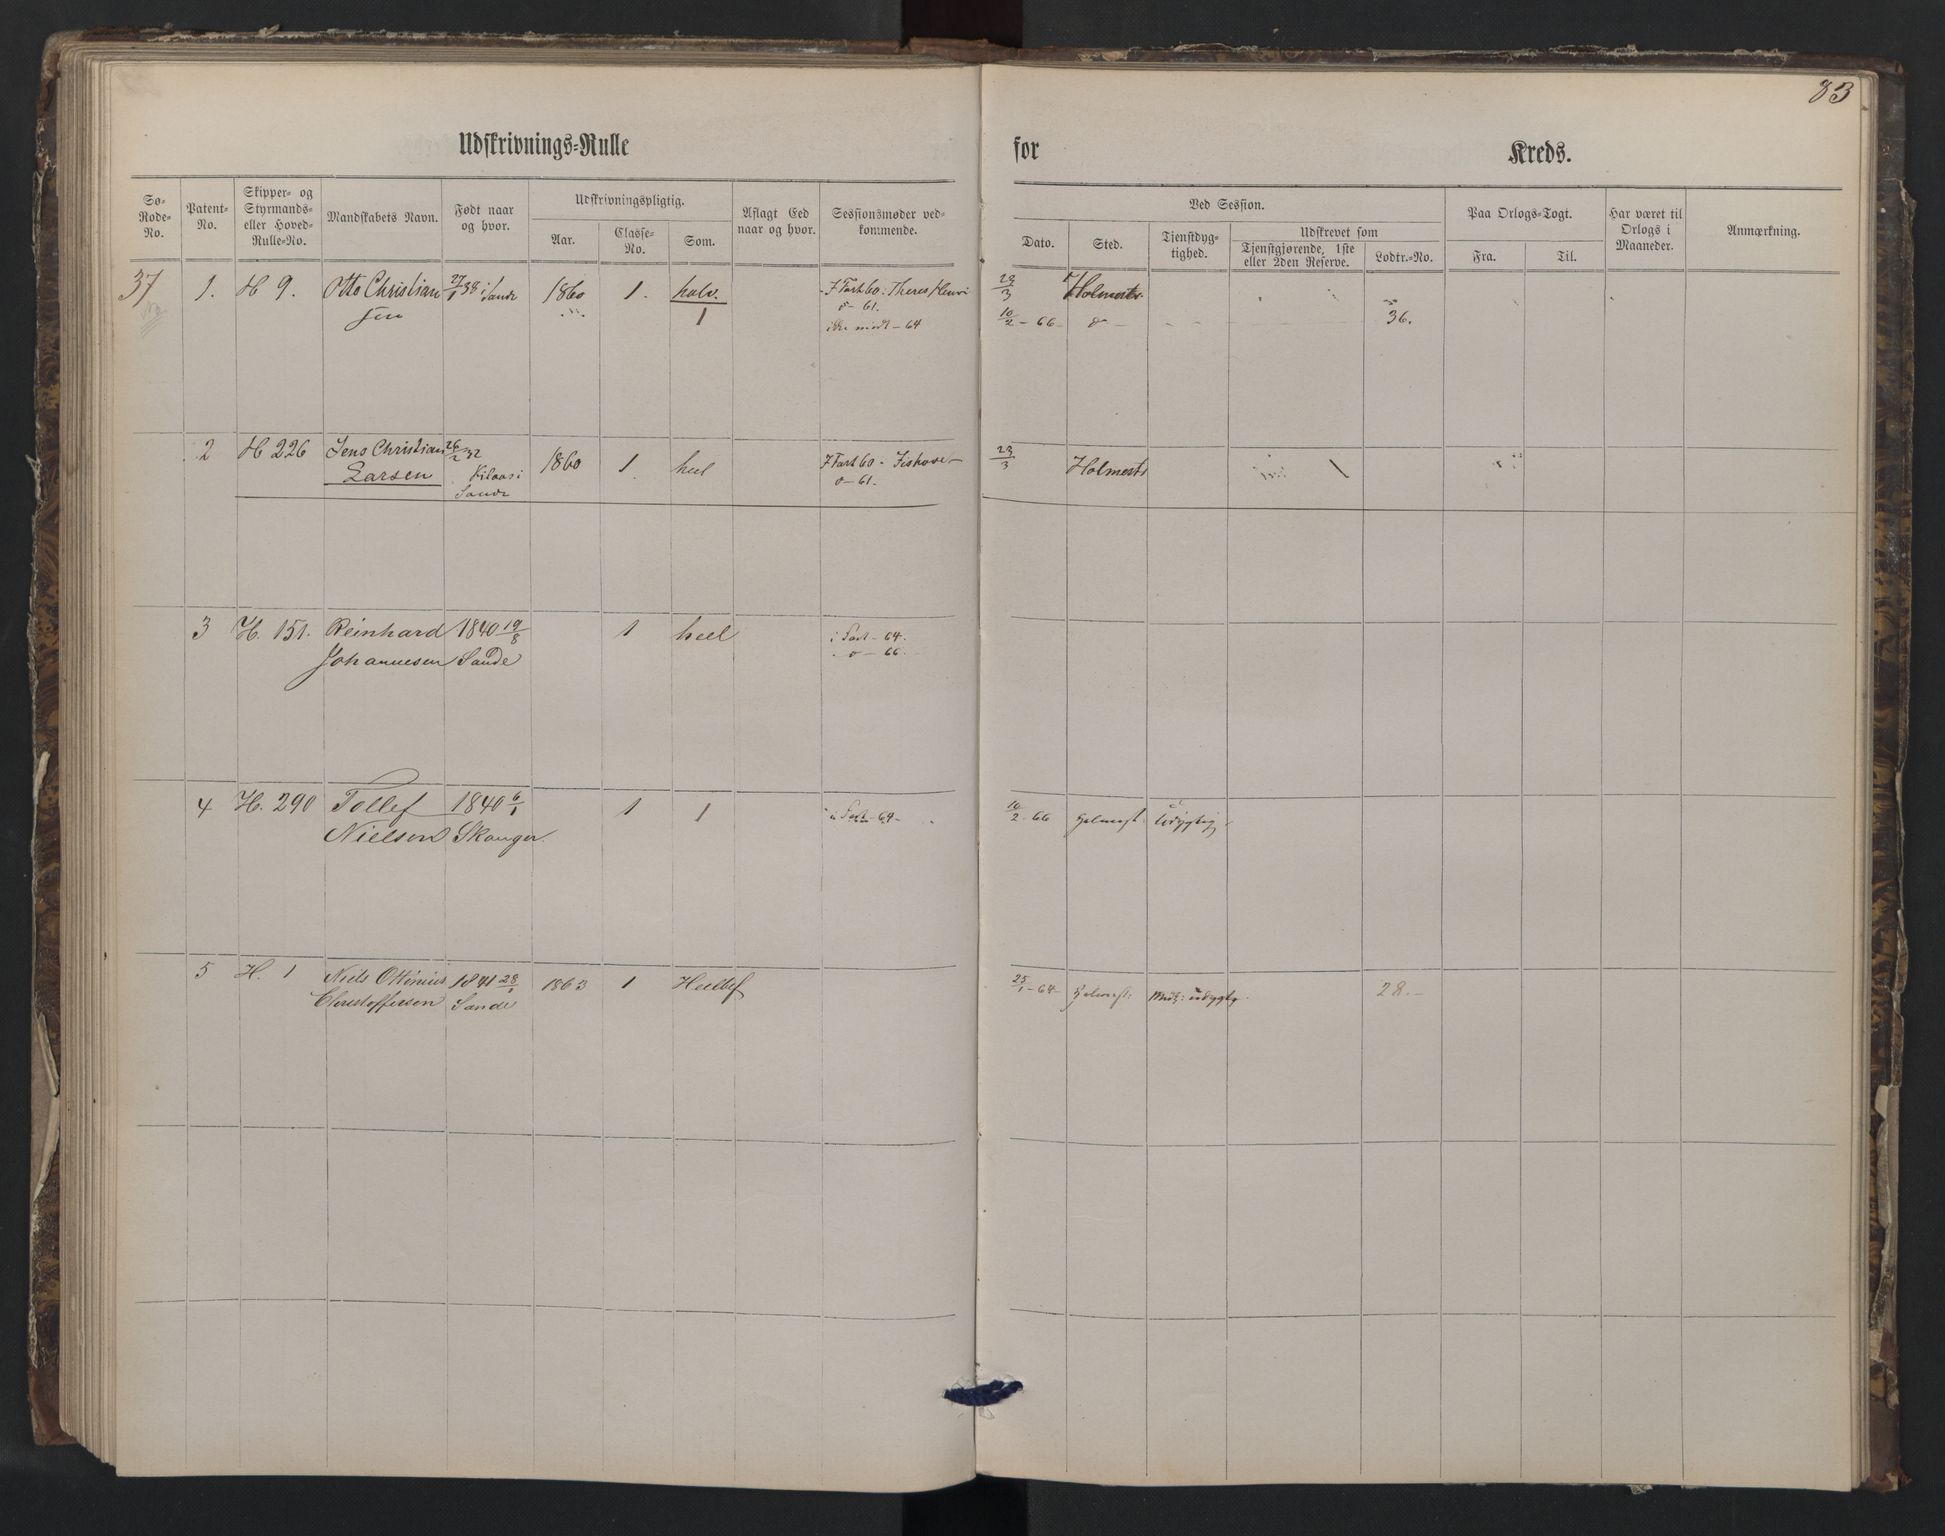 83
Udskrivnings-Rulle for Kreds.
Sø-Rode-No.
Patent-No.
Skipper- og Styrmands- eller Hoved-Rulle-No.
Mandskabets Navn.
Født naar og hvor.
Udskrivningspligtig.
Aar.
Classe-No.
Som.
Aflagt Eed naar og hvor.
Sessionsmøder vedkommende.
Ved Session.
Dato.
Sted.
Tjenstdygtighed.
Udskrevet som
Tjenstgjørende, 1ste eller 2den Reserve.
Lodtr.-No.
Paa Orlogs-Togt.
Fra.
Til.
Har været til Orlogs i Maaneder.
Anmærkning.
37 1. H 9. Otto Christian 27/1 38 i Sande 1860 1. halv. I Fart 60. 23/3 Holmestr.
sen 1 o - 61.
ikke mødt - 64 10/2 - 66 o - 36.
2 H 226 Jens Christian 26/2 32 1860 1 heel I Fart 60 - 23/3 Holmestr 1
Larsen i o - 61.
Sande
3 H. 151. Reinhard 1840 19/8 1 heel i Fart - 64.
Johannesen Sande o - 66.
4 H. 290 Tollef 1840 6/1 1 1 i Fart - 64 - 10/2 - 66 Holmest. Udygtig
Nielsen Skouger.
5 H. 1 Niels Ottinius 1841 28/1 1863 1 25/1 - 64 - Holmest: udygtg. 28. -
Christoffersen Sande